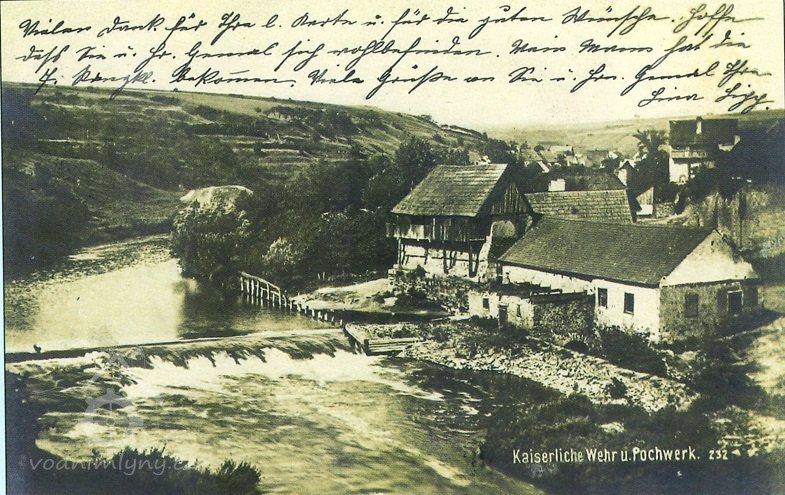 Vielen Dank für Ihre l. Karte u. für die guten Wünsche. Hoffe
dass Sie u. Hr. Gemal sich wohlbefinden. Mein Mann hat die
Bekommen. Viele Grüße an Sie u. Hr. Gemal Ihre
Lina
Kaiserliche Wehr u. Pochwerk. 232
voanimlyny.cz